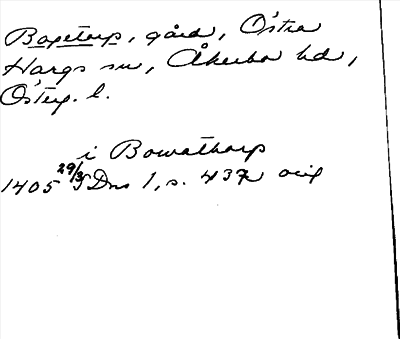 Boxetorp, gård, Östra
Hargs sn, Åkerbo hd,
Österg. l.
i Bowathorp
1405 29/3 SDns 1, s. 437 orig